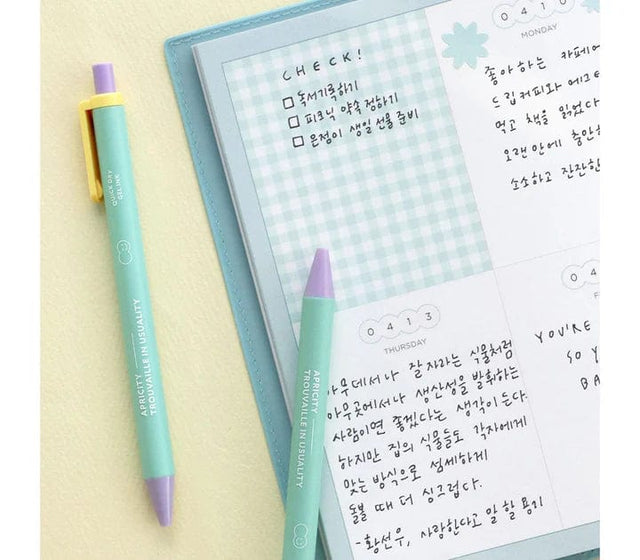 CHECK!
□ 독서기록하기
□ 피크닉 약속 정하기
□ 은정이 생일 선물 준비
0410
MONDAY
좋아하는 카페에
드립커피와 에그
먹고 책을 읽었다
오랜만에 충만
소소하고 잔잔한
0413
THURSDAY
아무데서나 잘 자라는 식물처럼
아무곳에서나 생산성을 발휘하는
사람이면 좋겠다는 생각이 든다.
하지만 집의 식물들도 각자에게
맞는 방식으로 섬세하게
돌볼 때 더 싱그럽다.
-황선우, 사랑한다고 말할 용기
041
F
YOU'RE
SO Y
BA
QUICK DRY
GEL INK
APRICITY
TROUVAILLE IN USUALITY
APRICITY
TROUVAILLE IN USUALITY